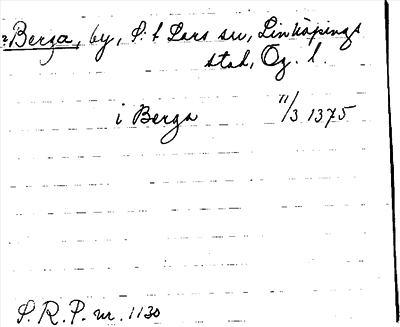 2 Berga, by, S:t Lars sn, Linköpings
stad, Ög. l.
i Berga 11/3 1375
S. R. P. nr. 1130